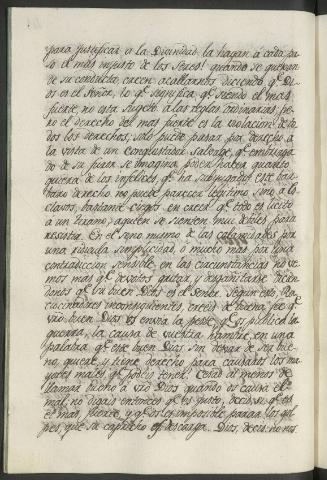 para justificar a la Divinidad la hagan á cada pa-
so el mas injusto de los Seres! quando se quejan
de su conducta, creen acallarnos diciendo qᵉ Di-
os es el Señor, lo qᵉ significa qᵉ siendo el mas
fuerte, no esta sugeto á las reglas ordinarias, pe-
ro el derecho del mas fuerte es la violacion de to
dos los derechos, solo puede pasar por derecho á
la vista de un conquistador salvage, qᵉ embriaga
do de su furia se imagina poder hacer quanto
quiera de los infelices qᵉ ha subyugado: este bar-
baro derecho no puede parecer legitimo sino á es
clavos, bastante ciegos en creer qᵉ todo es licito
á un tirano, á quien se sienten muy debiles para
resistir. En el seno mismo de las calamidades por
una simplicidad, ó mucho mas por una
contradiccion sensible en las circunstancias no ve
mos mas qᵉ devotos gritar y desgañitarse dicien
donos qᵉ su buen Dios es el Señor. Segun esto, Ra-
ciocinadores inconsiguientes, creeis de buena fee qᵉ
vro buen Dios os envia la peste, qᵉ os publica la
guerra, la causa de vuestra hambre, en una
palabra qᵉ este buen Dios, sin dejar de ser bue
no, quiere y tiene derecho para causaros los ma
yores males qᵉ podeis sufrir. Cesad al menos de
llamar bueno á vro Dios quando os causa el
mal; no digais entonces qᵉ es justo, decid, si, qᵉ es
el mas fuerte, y qᵉ os es imposible parar los gol
pes, que su capricho os descarga. Dios, decis, no nos